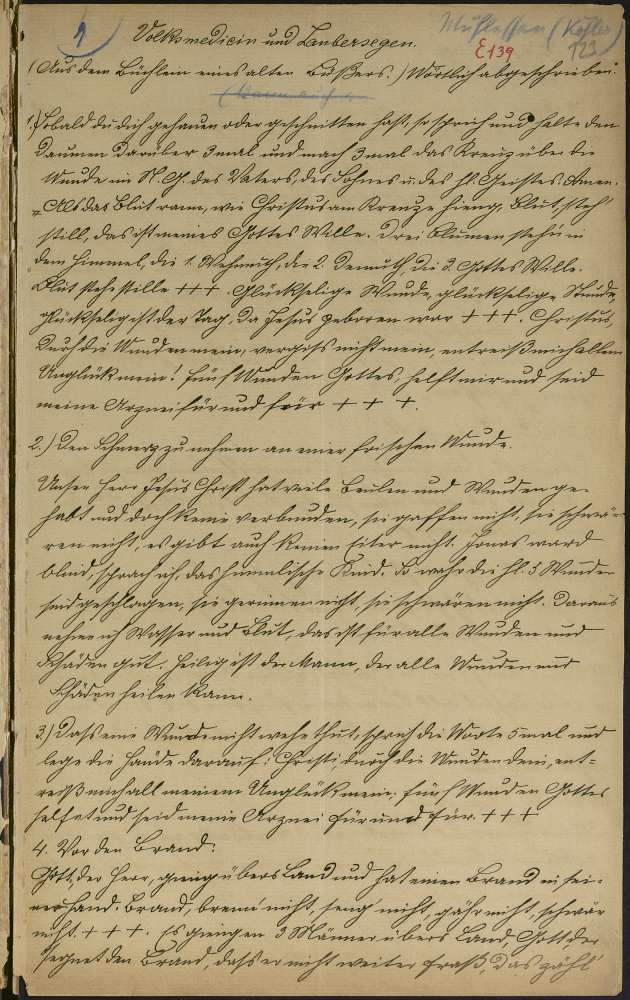 1) Volksmedicin und Zaubersegen.
E139 123
(Aus dem Büchlein eines alten Büßers.) Wörtlich abgeschrieben.
1.) Sobald du dich gehauen oder geschnitten hast, so sprich und halte den
Daumen darüber 3 mal und mach 3 mal das Kreuz über die
Wunde im N. G. des Vaters, des Sohnes u. des hl. Geistes. Amen.
"Als das Blut rann, wie Christus am Kreuze hieng, Blut, steh'
still, das ist meines Gottes Wille. Drei Blumen stehn in
dem Himmel, die 1. Wehmuth, die 2. Demuth, die 3. Gottes Wille.
Blut stehe stille +++. Glückselige Wunde, glückselige Stunde,
glückselig ist der Tag, da Jesus geboren war +++. Christus,
durch die Wunden mein, vergiss nicht mein, entreiß mich allem
Unglück mein! Fünf Wunden Gottes, helft mir und seid
meine Arznei für und für + + +.
2.) Den Schmerz zu nehmen an einer frischen Wunde.
Unser Herr Jesus Christ hat viele Beulen und Wunden ge-
habt und doch keine verbunden, sie gaffen nicht, sie schwä-
ren nicht, es gibt auch keinen Eiter nicht. Jonas ward
blind, sprach ich, das himmlische Kind. So wahr die hl. 5 Wunden
seid geschlagen, sie gerinnen nicht, sie schwären nicht. Daraus
nehme ich Wasser und Blut, das ist für alle Wunden und
Schäden gut. Heilig ist der Mann, der alle Wunden und
Schäden heilen kann.
3.) Dass eine Wunde nicht wehe thut, sprich die Worte 5 mal und
lege die Hände darauf: Christi durch die Wunden dein, ent-
reiß mich all meinem Unglück mein, fünf Wunden Gottes
helfet und seid meine Arznei für und für. +++
4. Vor den Brand:
Gott, der Herr, gieng übers Land und hat einen Brand in sei-
ner Hand. Brand, brenn' nicht, seng' nicht, gähr nicht, schwär
nicht. +++. Es giengen 3 Männer übers Land, Gott der
segnet den Brand, dass er nicht weiter fraß, das zähl'